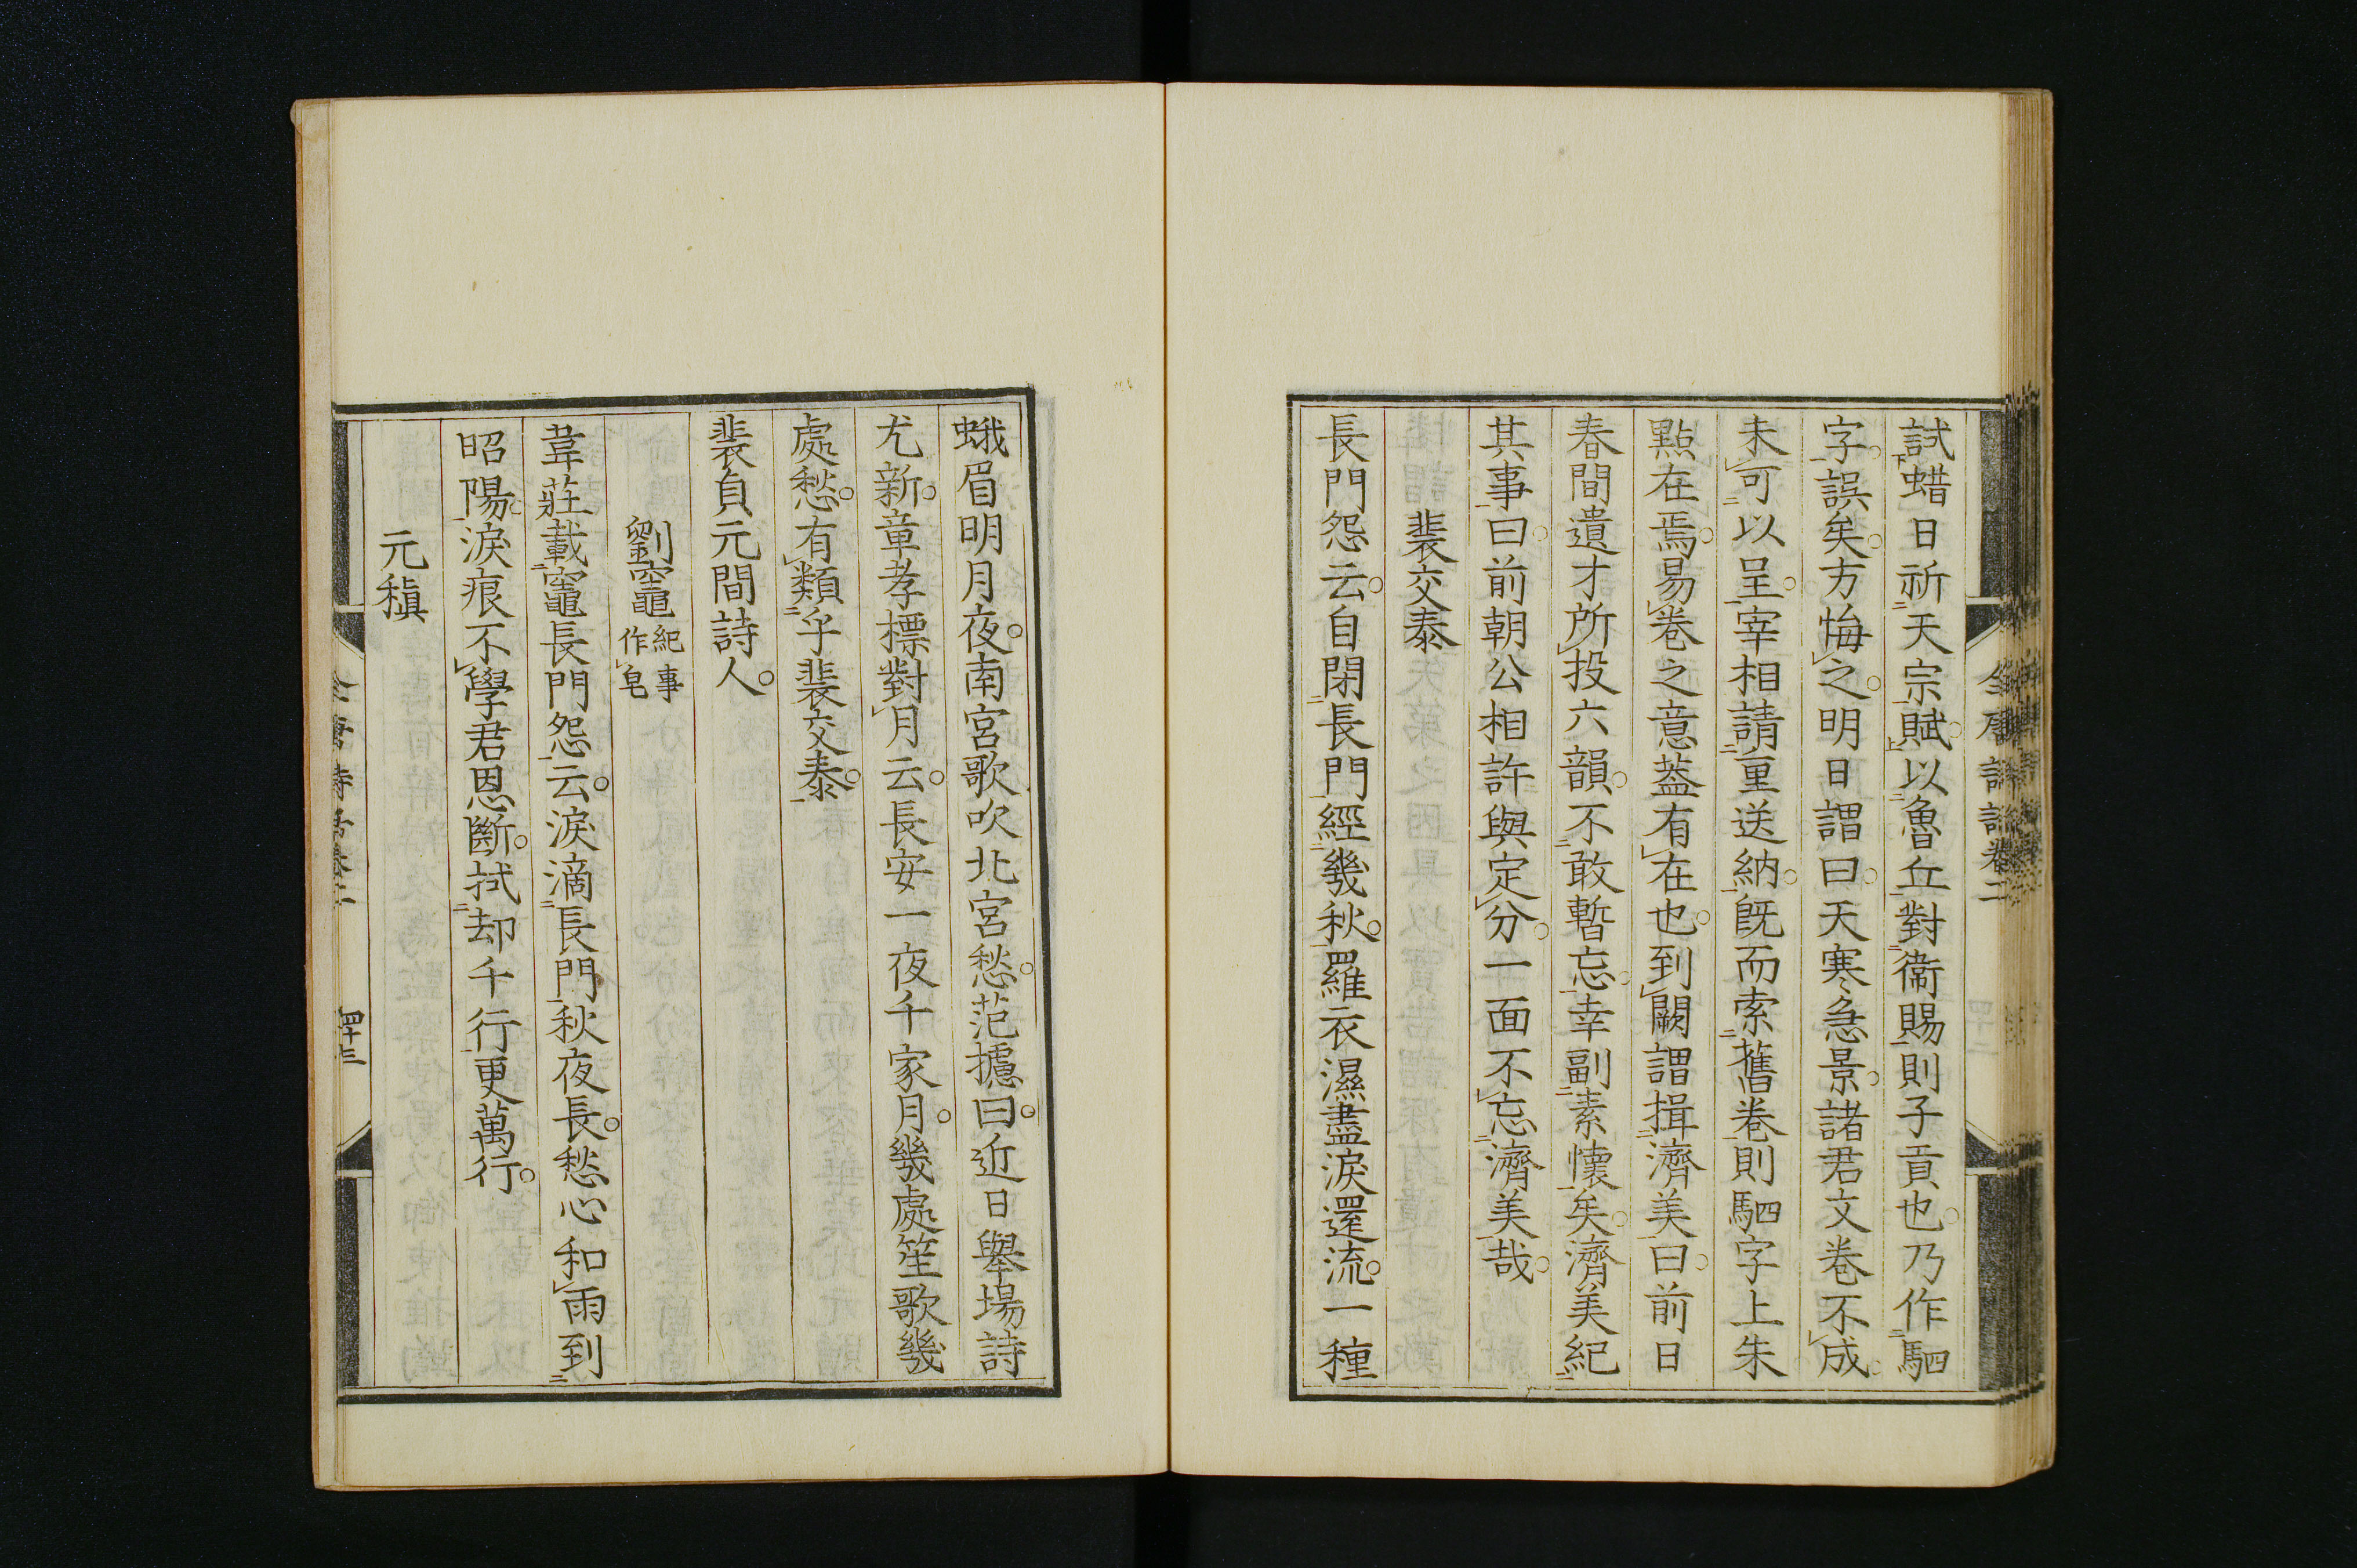 試蜡日祈天宗賦以魯丘對衞賜則子貢也乃作駟
字誤矣方悔之明日謂曰天寒急景諸君文卷不成
未可以呈宰相請重送納旣而索舊卷則駟字上朱
點在焉易卷之意葢有在也到闕謂揖濟美曰前日
春間遺才所投六韻不敢暫忘幸副素懷矣濟美紀
其事曰前朝公相許與定分一面不忘濟美哉
裴交泰
長門怨云自閉長門經幾秋羅衣濕盡淚還流一種
蛾眉明月夜南宮歌吹北宮愁范攄曰近日舉場詩
尤新章孝標對月云長安一夜千家月幾處笙歌幾
處愁有類乎裴交泰
裴貞元間詩人
劉竈紀事作皂
韋莊載竈長門怨云淚滴長門秋夜長愁心和雨到
昭陽淚痕不學君恩斷拭却千行更萬行
元稹
四十三